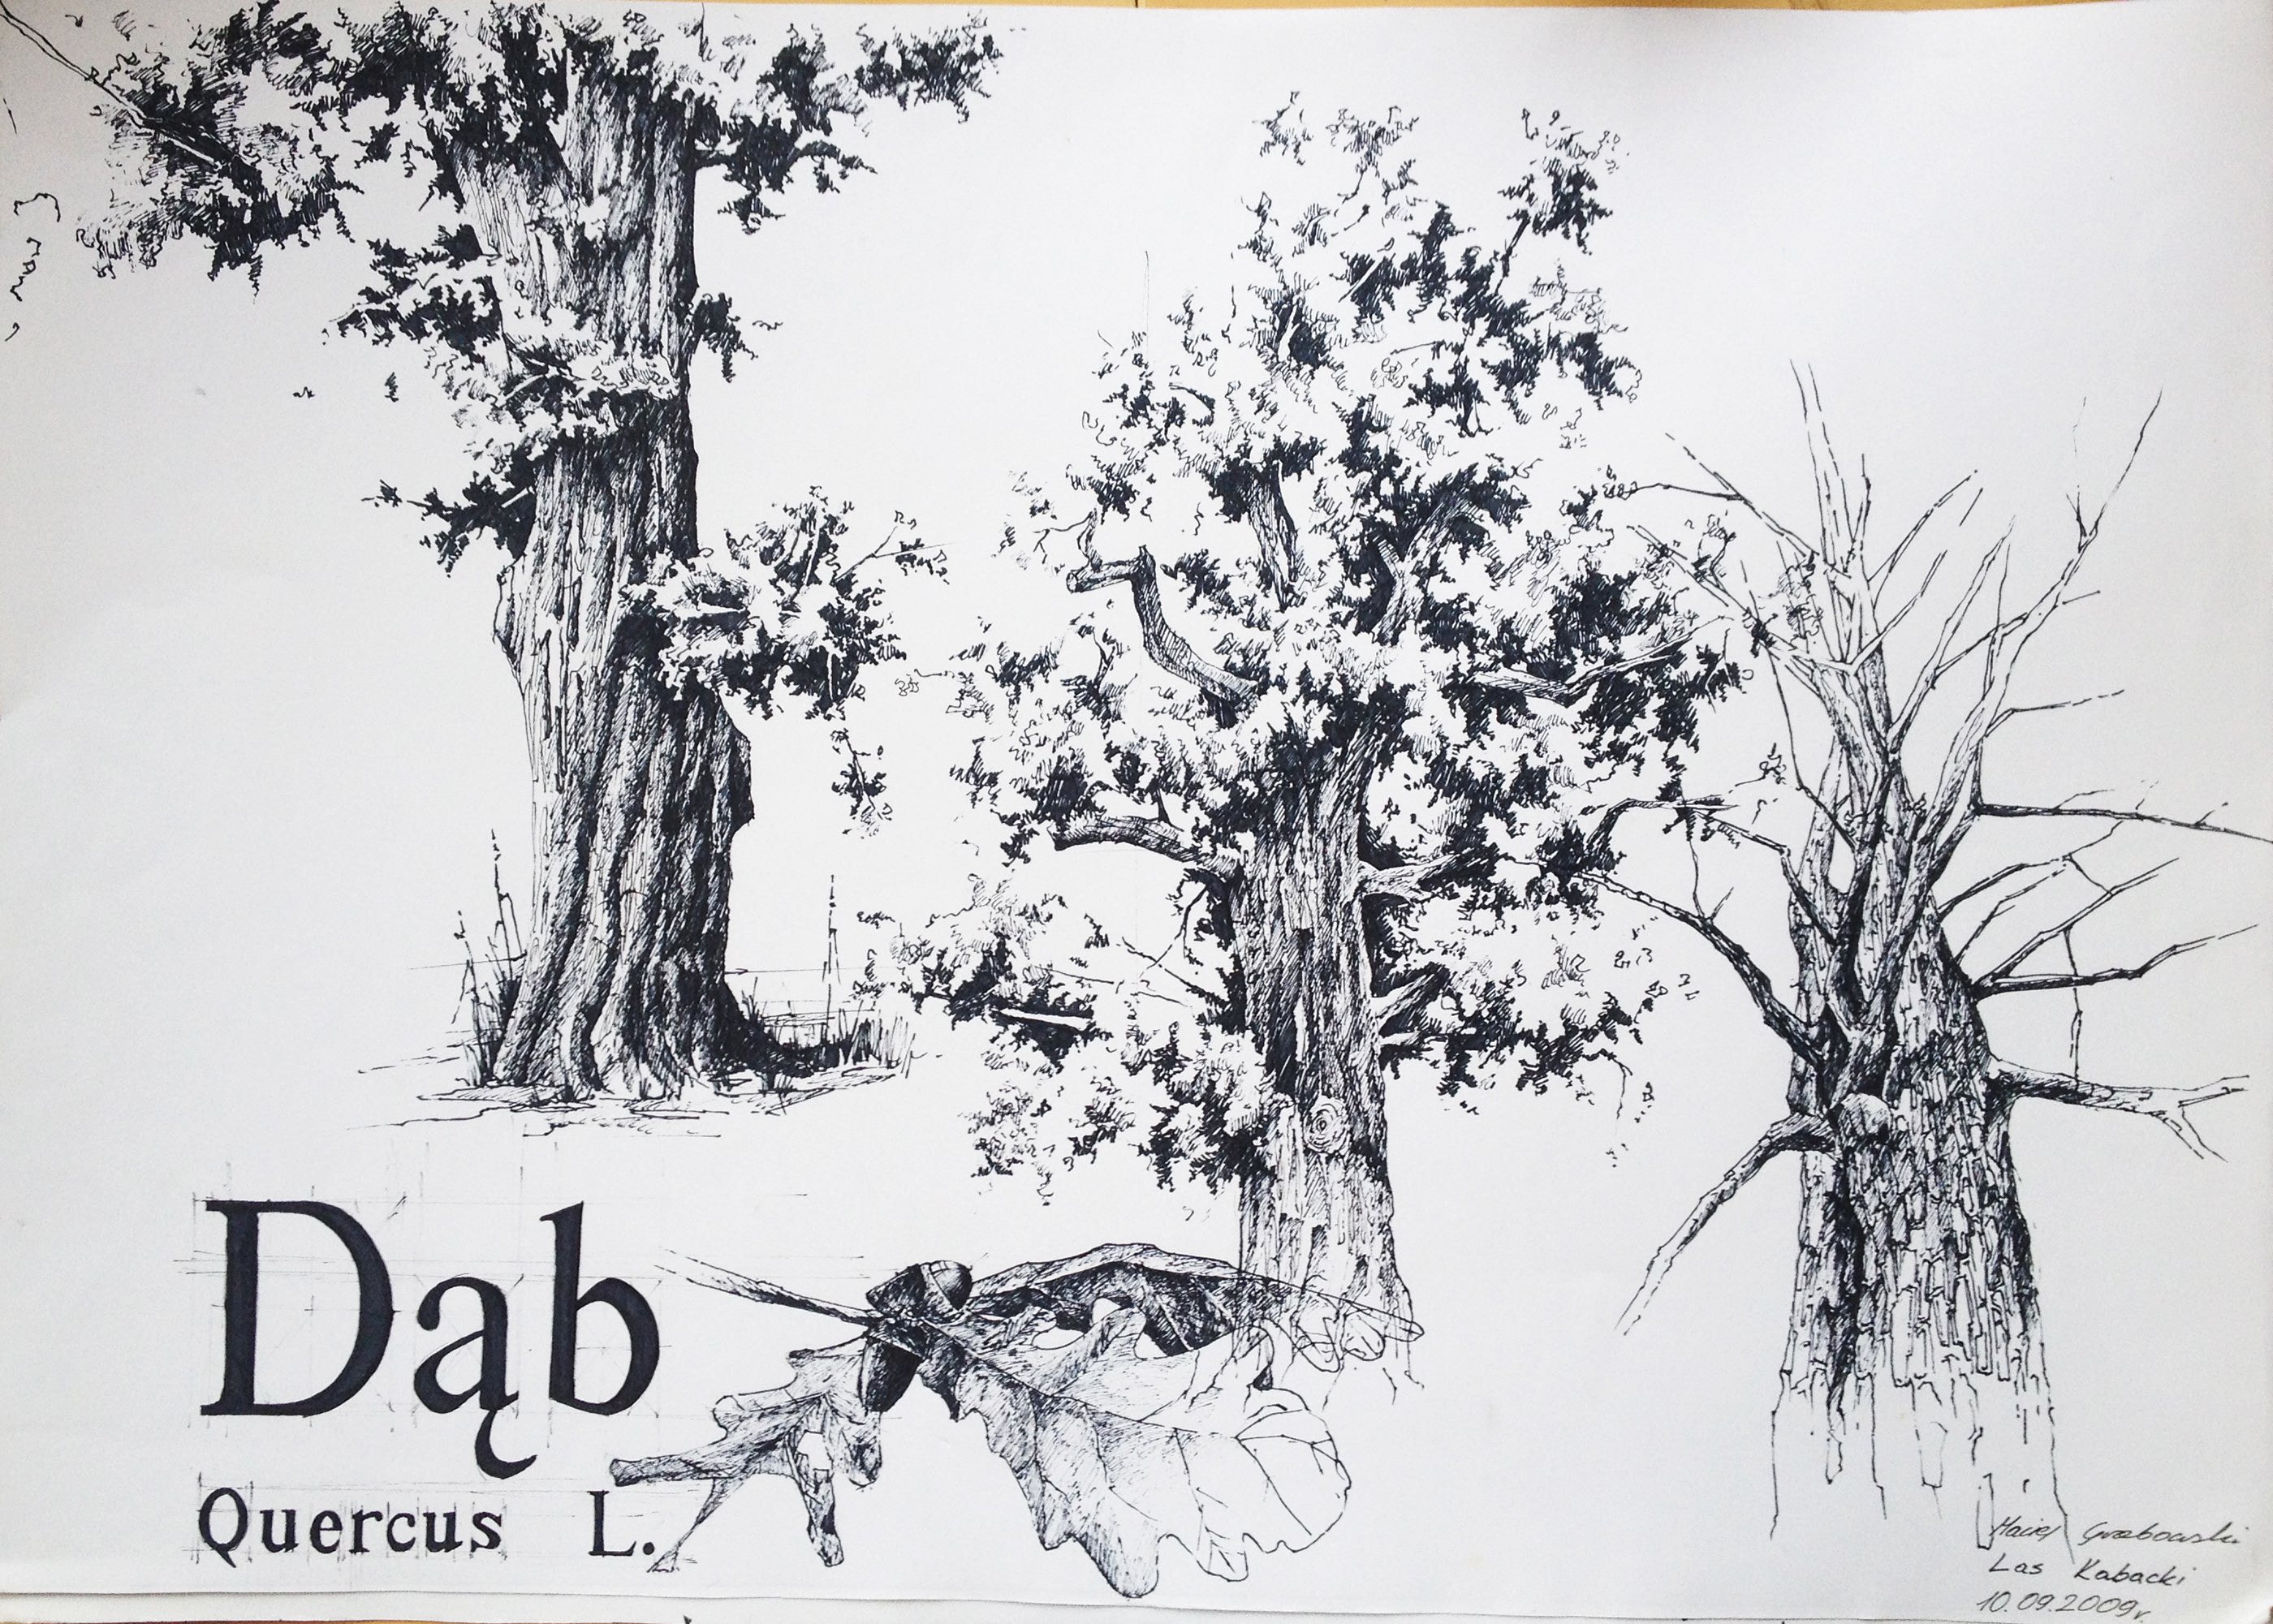 Dąb
Quercus L.
Maciej Grabowski
Las Kabacki
10.09.2009r.